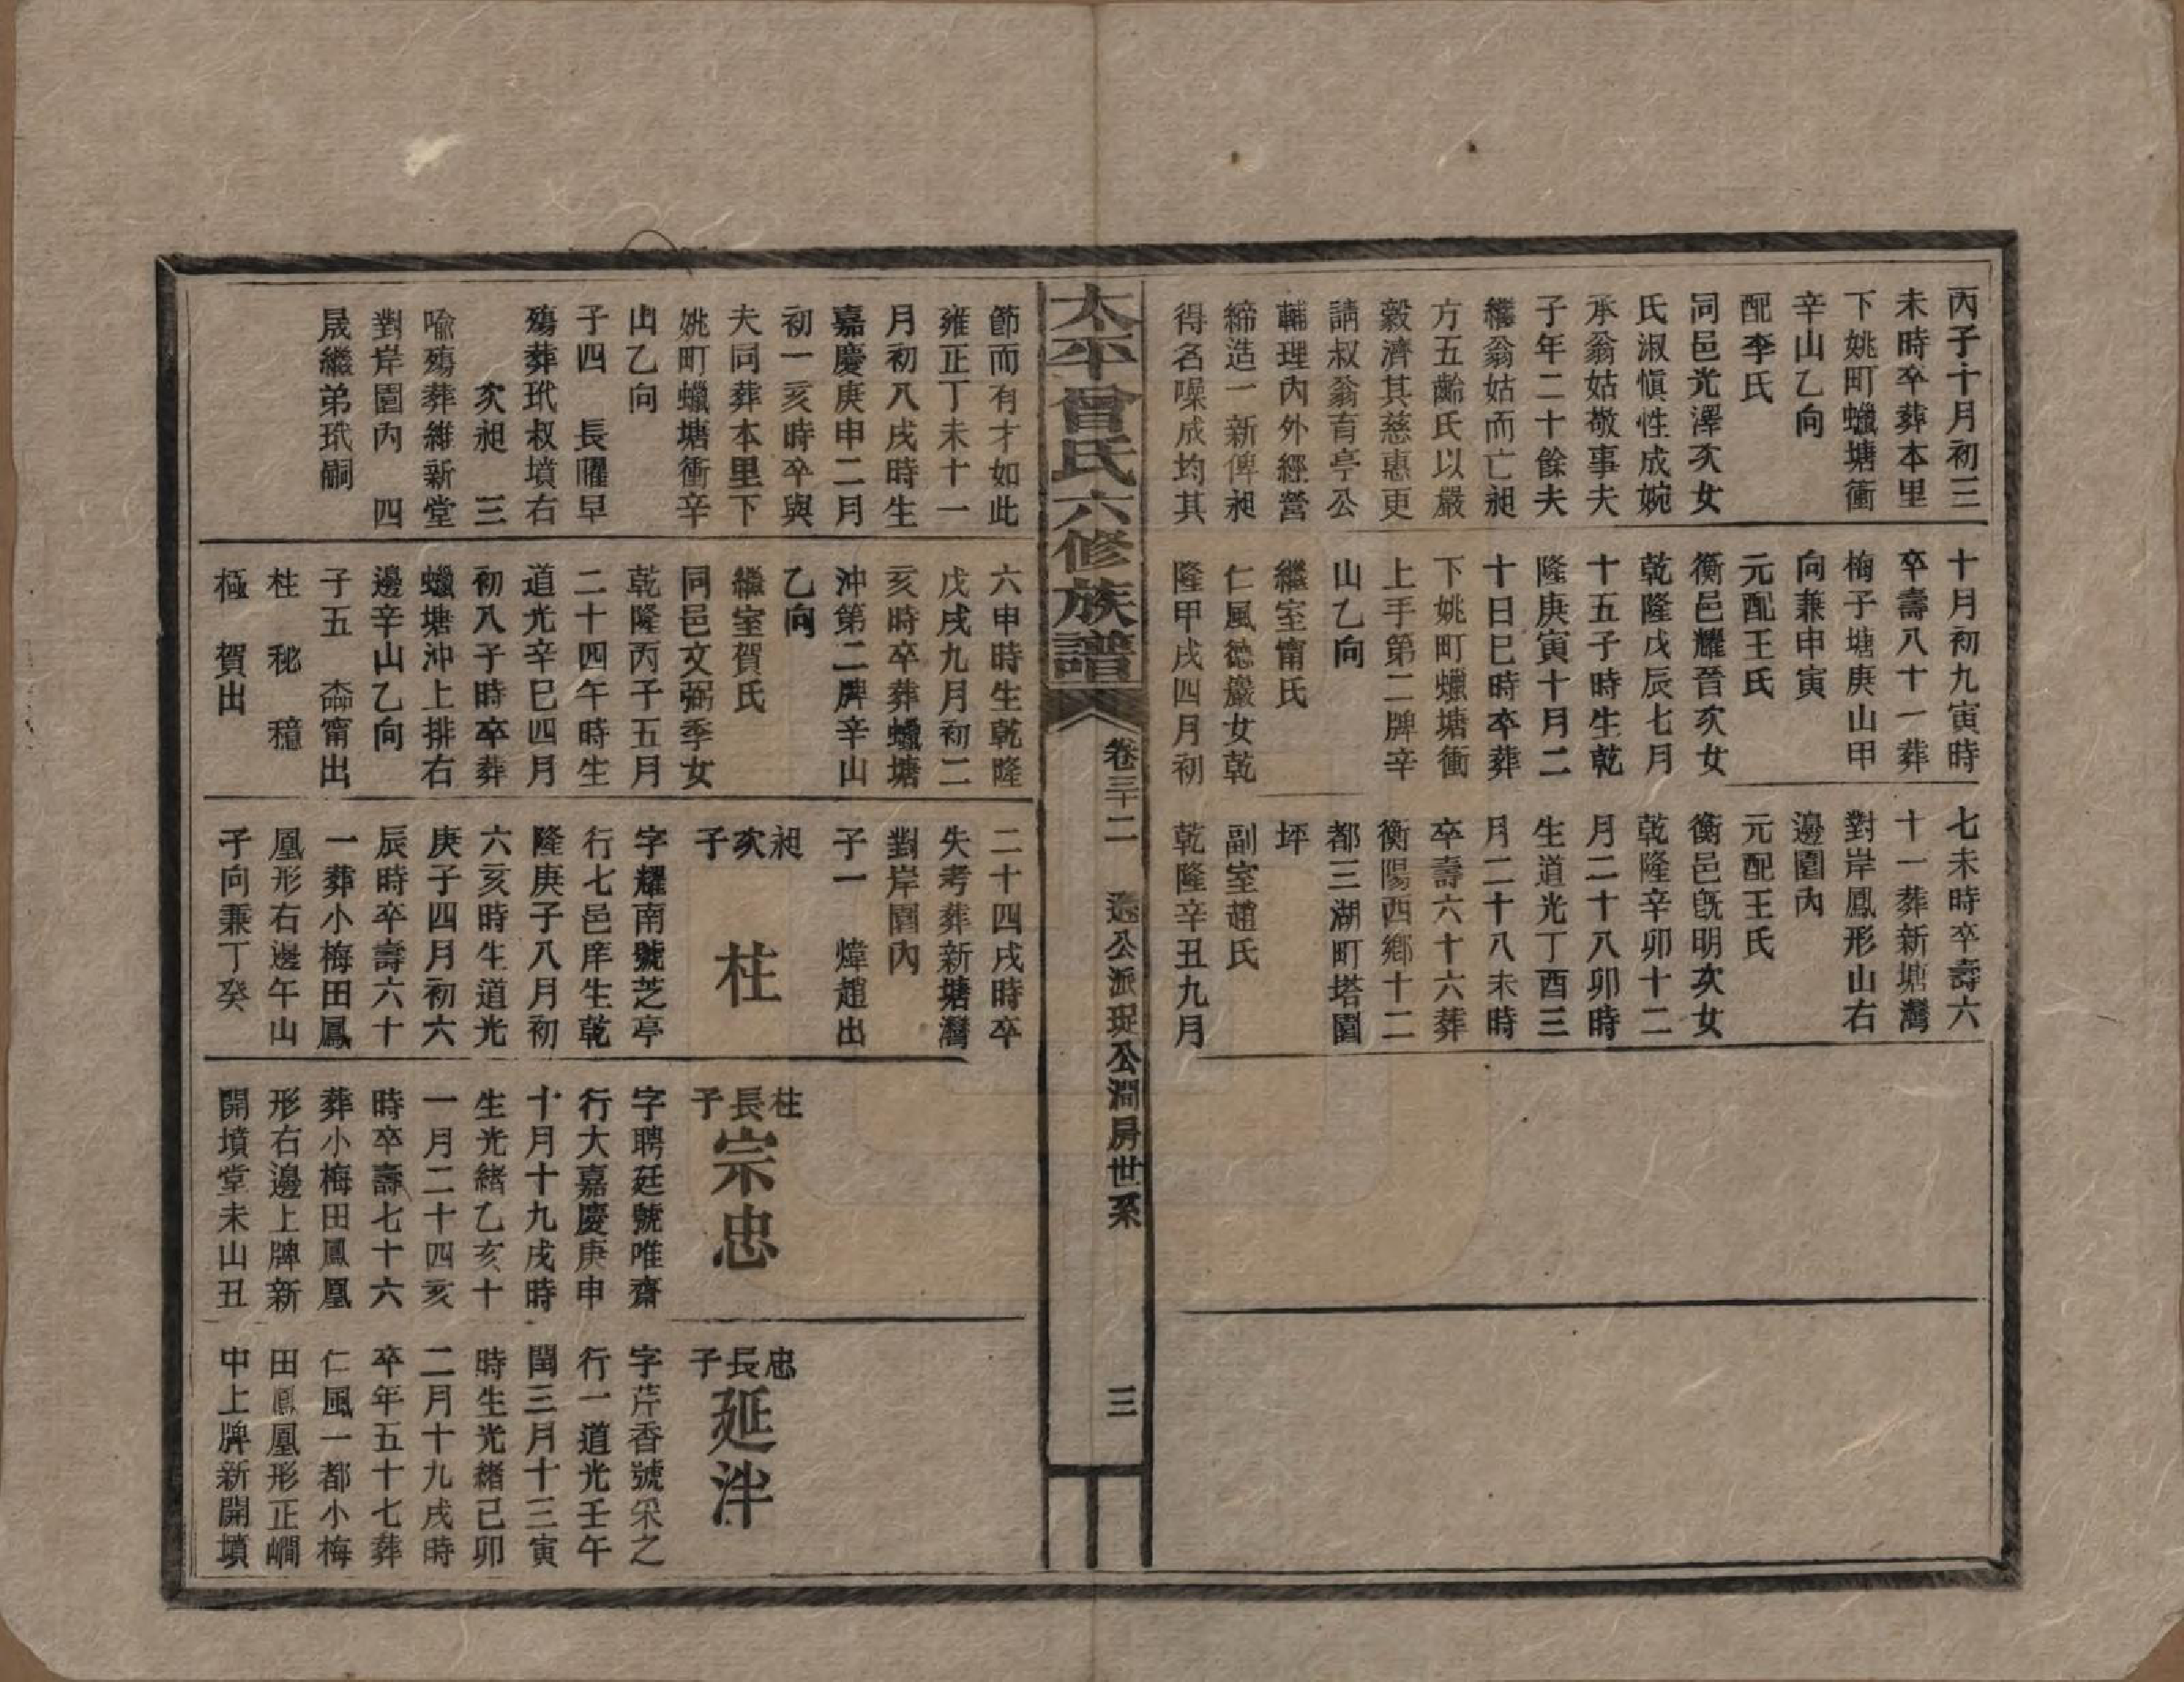 丙子十月初三
未時卒葬本里
下姚町蠟塘衝
辛山乙向
配李氏
同邑光澤次女
氏淑愼性成婉
承翁姑敬事夫
子年二十餘夫
繼翁姑而亡昶
方五齡氏以嚴
毅濟其慈惠更
請叔翁育亭公
輔理內外經營
締造一新俾昶
得名噪成均其
十月初九寅時
卒壽八十一葬
梅子塘庚山甲
向兼申寅
元配王氏
衡邑耀晉次女
乾隆戊辰七月
十五子時生乾
隆庚寅十月二
十日巳時卒葬
下姚町蠟塘衝
上手第二牌辛
山乙向
繼室甯氏
仁風德巖女乾
隆甲戌四月初
七未時卒壽六
十一葬新塘灣
對岸鳳形山右
邊園內
元配王氏
衡邑旣明次女
乾隆辛卯十二
月二十八卯時
生道光丁酉三
月二十八未時
卒壽六十六葬
衡陽西鄕十二
都三湖町塔園
坪
副室趙氏
乾隆辛丑九月
太平曾氏六修族譜
卷三十二
遶公派珽公澗房世系
三
節而有才如此
雍正丁未十一
月初八戌時生
嘉慶庚申二月
初一亥時卒與
夫同葬本里下
姚町蠟塘衝辛
山乙向
子四　長曜早
殤葬玳叔墳右
次昶　三
喩殤葬紺新堂
對岸園內　四
晟繼弟玳嗣
六申時生乾隆
戊戌九月初二
亥時卒葬蠟塘
沖第二牌辛山
乙向
繼室賀氏
同邑文弼季女
乾隆丙子五月
二十四午時生
道光辛巳四月
初八子時卒葬
蠟塘沖上排右
邊辛山乙向
子五　甯出
柱　秘　穡
極　賀出
二十四戌時卒
失考葬新塘灣
對岸園內
子一　煒趙出
昶次子
柱
字耀南號芝亭
行七邑庠生乾
隆庚子八月初
六亥時生道光
庚子四月初六
辰時卒壽六十
一葬小梅田鳳
凰形右邊午山
子向兼丁癸
柱長子
宗忠
字聘廷號唯齋
行大嘉慶庚申
十月十九戌時
生光緖乙亥十
一月二十四亥
時卒壽七十六
葬小梅田鳳凰
形右邊上牌新
開墳堂未山丑
忠長子
延泮
字芹香號采之
行一道光壬午
閏三月十三寅
時生光緖己卯
二月十九戌時
卒年五十七葬
仁風一都小梅
田鳳凰形正嶹
中上牌新開墳